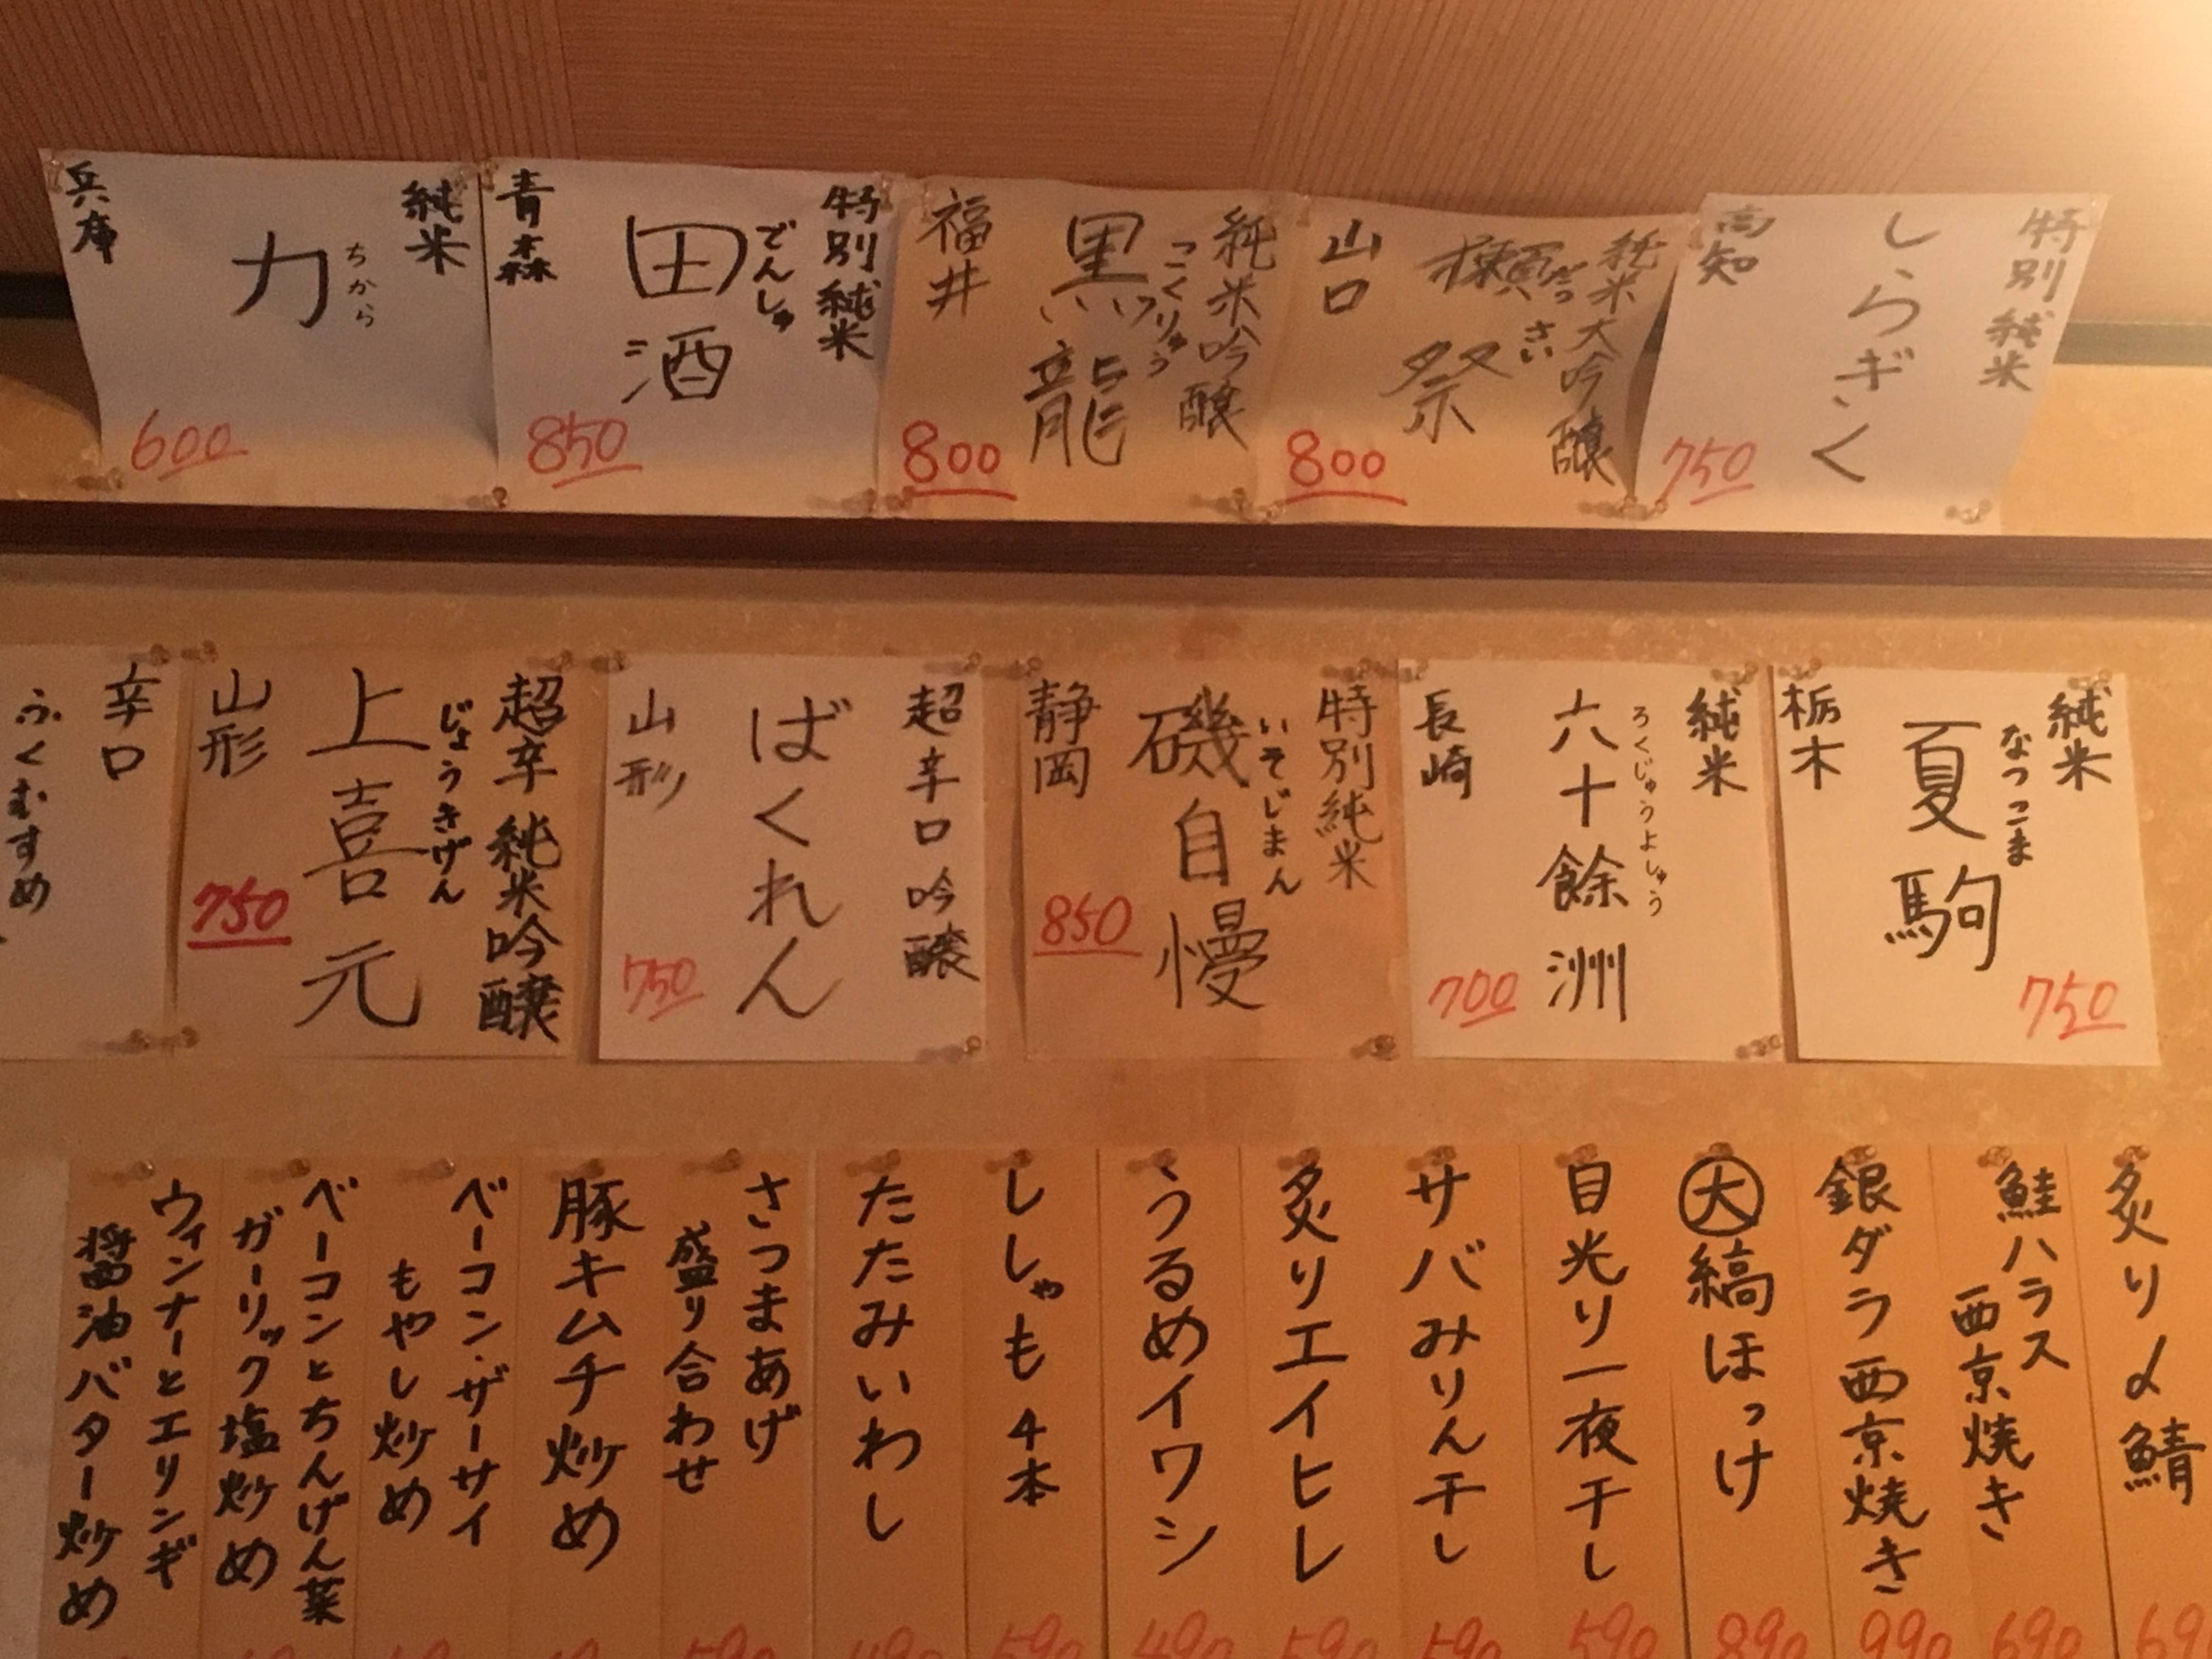 特別純米
しらぎく
高知
750
純米大吟醸
獺祭
だっさい
山口
800
純米吟醸
黒龍
こくりゅう
福井
800
特別純米
でんしゅ
田酒
青森
850
純米
ちから
力
兵庫
600
純米
なつこま
夏駒
栃木
750
純米
ろくじゅうよしゅう
六十餘洲
長崎
700
特別純米
いそじまん
磯自慢
静岡
850
超辛口吟醸
ばくれん
山形
750
超辛純米吟醸
じょうきげん
上喜元
山形
750
辛口
ふくむすめ
炙り〆鯖
鮭ハラス
西京焼き
690
銀ダラ西京焼き
990
大縞ほっけ
890
目光り一夜干し
590
サバみりん干し
590
炙りエイヒレ
590
うるめイワシ
490
ししゃも4本
590
たたみいわし
490
さつまあげ
盛り合わせ
590
豚キムチ炒め
ベーコン・ザーサイ
もやし炒め
ベーコンとちんげん菜
ガーリック塩炒め
ウィンナーとエリンギ
醤油バター炒め